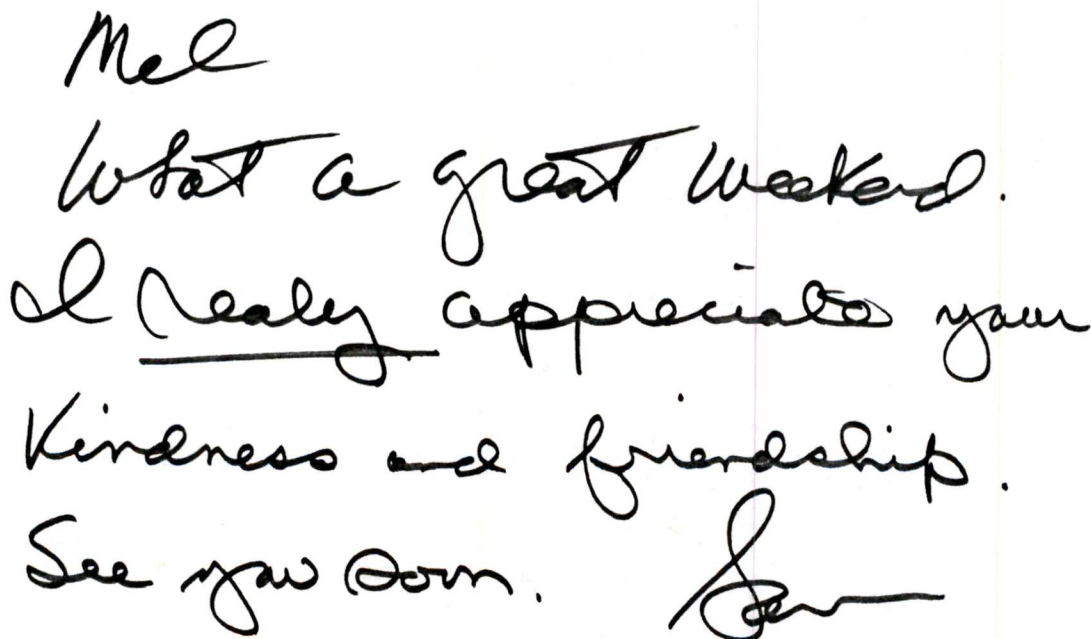 Mel
What a great weekend.
I really appreciate your
Kindness and friendship.
See you soon.